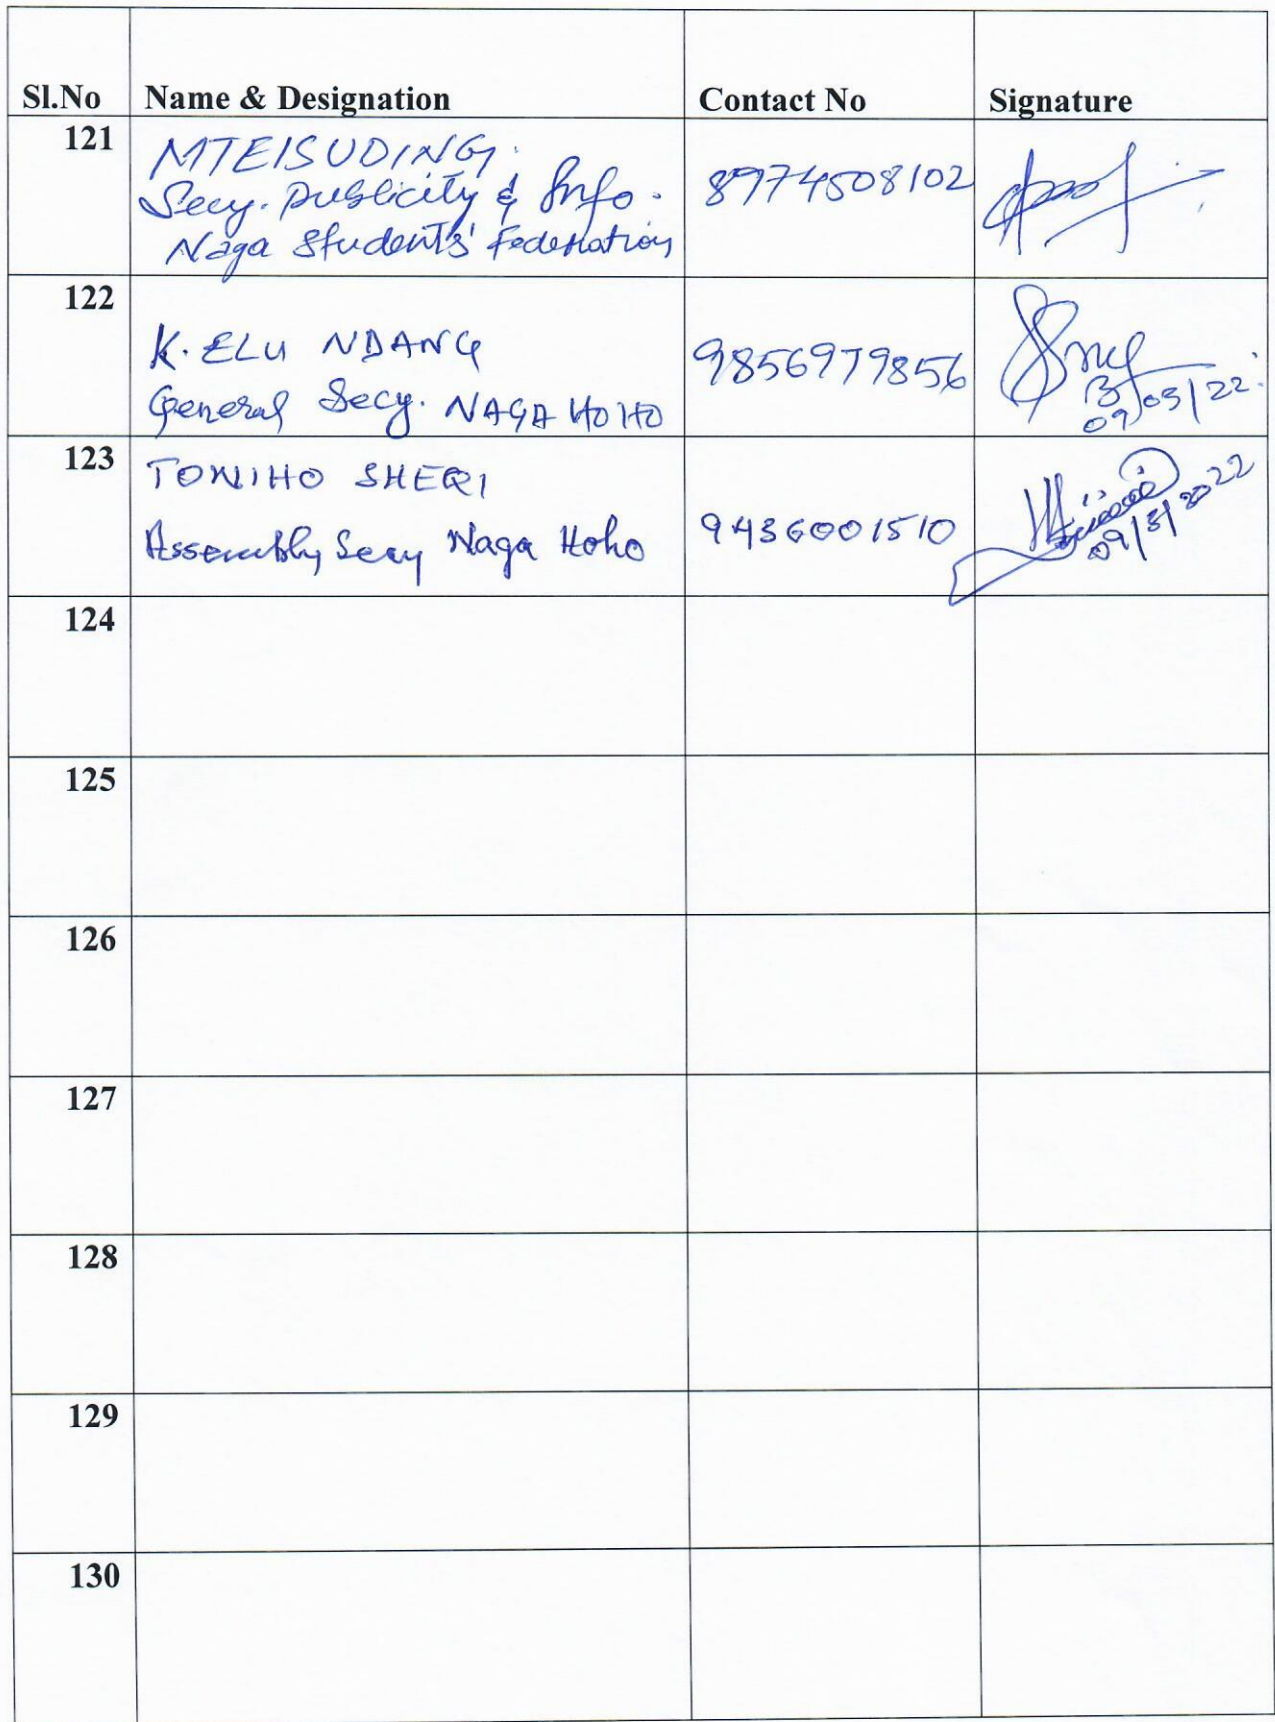 Sl.No Name & Designation Contact No Signature
121 MTEISUDING.
Secy. Publicity & Info. 8974508102
Naga Students' Federation
122
K. ELU NDANG 9856979856
General Secy. NAGA HOHO 09/03/22
123 TONIHO SHEQI
Assembly Secy Naga Hoho 9436001510 09/3/2022
124
125
126
127
128
129
130